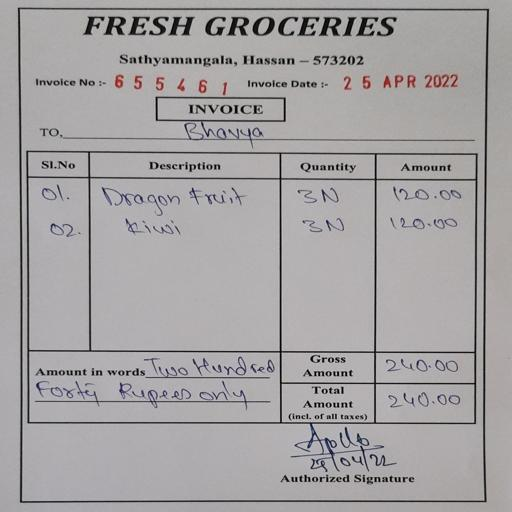 FRESH GROCERIES
Sathyamangala, Hassan – 573202
Invoice No :- 655461 Invoice Date :- 25 APR 2022
INVOICE
TO, Bhavya
Sl.No Description Quantity Amount
01. Dragon Fruit 3N 120.00
02. Kiwi 3N 120.00
Amount in words Two Hundred Forty Rupees only
Gross Amount 240.00
Total Amount (incl. of all taxes) 240.00
Apllo
Authorized Signature